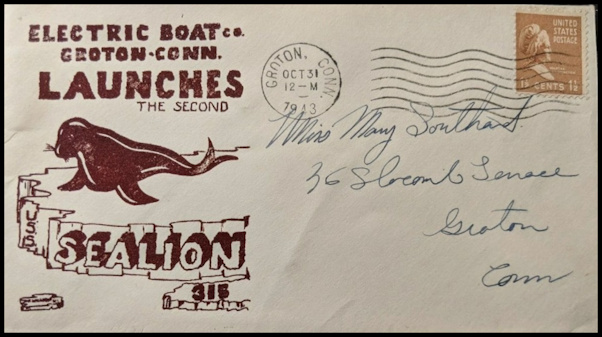 ELECTRIC BOAT CO.
GROTON-CONN.
LAUNCHES
THE SECOND
USS
SEALION
315
GROTON, CONN.
OCT 31
12-M
1943
UNITED
STATES
POSTAGE
1½ CENTS 1½
Miss Mary Southard.
36 Slocomb Terrace
Groton
Conn